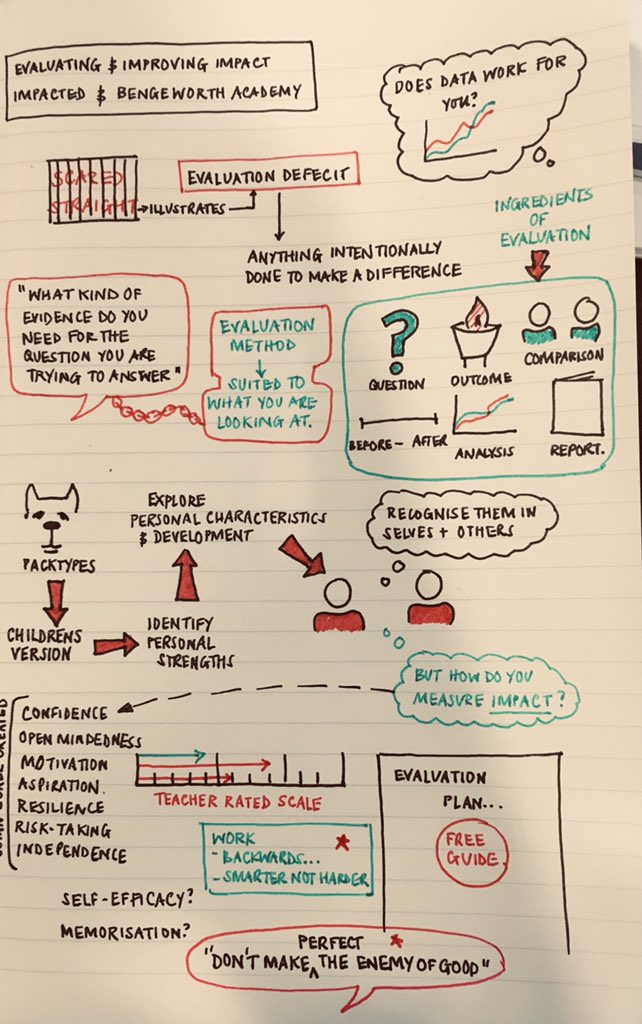 EVALUATING & IMPROVING IMPACT
IMPACTED & BENGEWORTH ACADEMY
DOES DATA WORK FOR
YOU?
SCARED
STRAIGHT
ILLUSTRATES
EVALUATION DEFECIT
ANYTHING INTENTIONALLY
DONE TO MAKE A DIFFERENCE
INGREDIENTS
OF
EVALUATION
"WHAT KIND OF
EVIDENCE DO YOU
NEED FOR THE
QUESTION YOU ARE
TRYING TO ANSWER"
EVALUATION
METHOD
SUITED TO
WHAT YOU ARE
LOOKING AT.
QUESTION
OUTCOME
COMPARISON
BEFORE - AFTER
ANALYSIS
REPORT.
PACKTYPES
CHILDRENS
VERSION
IDENTIFY
PERSONAL
STRENGTHS
EXPLORE
PERSONAL CHARACTERISTICS
& DEVELOPMENT
RECOGNISE THEM IN
SELVES + OTHERS
BUT HOW DO YOU
MEASURE IMPACT?
CONFIDENCE
OPEN MINDEDNESS
MOTIVATION
ASPIRATION.
RESILIENCE
RISK-TAKING
INDEPENDENCE
TEACHER RATED SCALE
WORK
- BACKWARDS...
- SMARTER NOT HARDER
EVALUATION
PLAN...
FREE
GUIDE.
SELF-EFFICACY?
MEMORISATION?
PERFECT
"DON'T MAKE THE ENEMY OF GOOD"